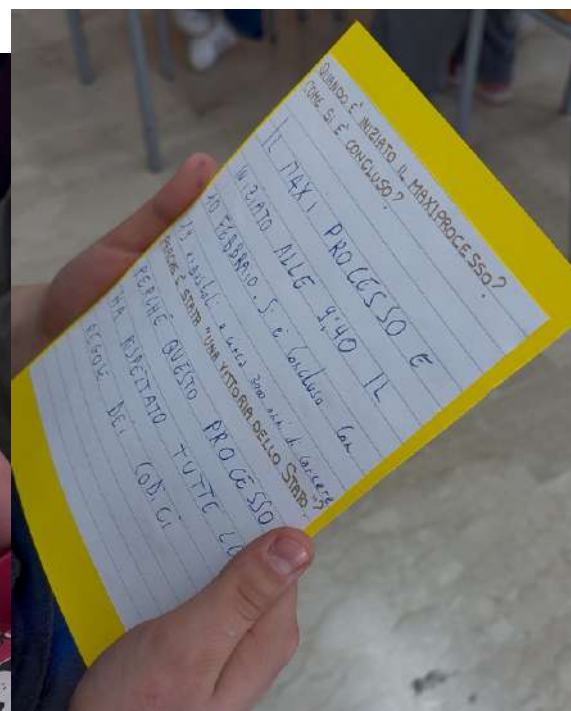 QUANDO È INIZIATO IL MAXIPROCESSO?
COME SI È CONCLUSO?
IL MAXI PROCESSO E
INIZIATO ALLE 9:40 IL
10 FEBBRAIO. Si è concluso con
19 ergastoli e circa 3000 anni di carcere
PERCHÈ È STATA "UNA VITTORIA DELLO STATO"?
PERCHÉ QUESTO PROCESSO
HA RISPETTATO TUTTE LE
REGOLE DEI CODICI